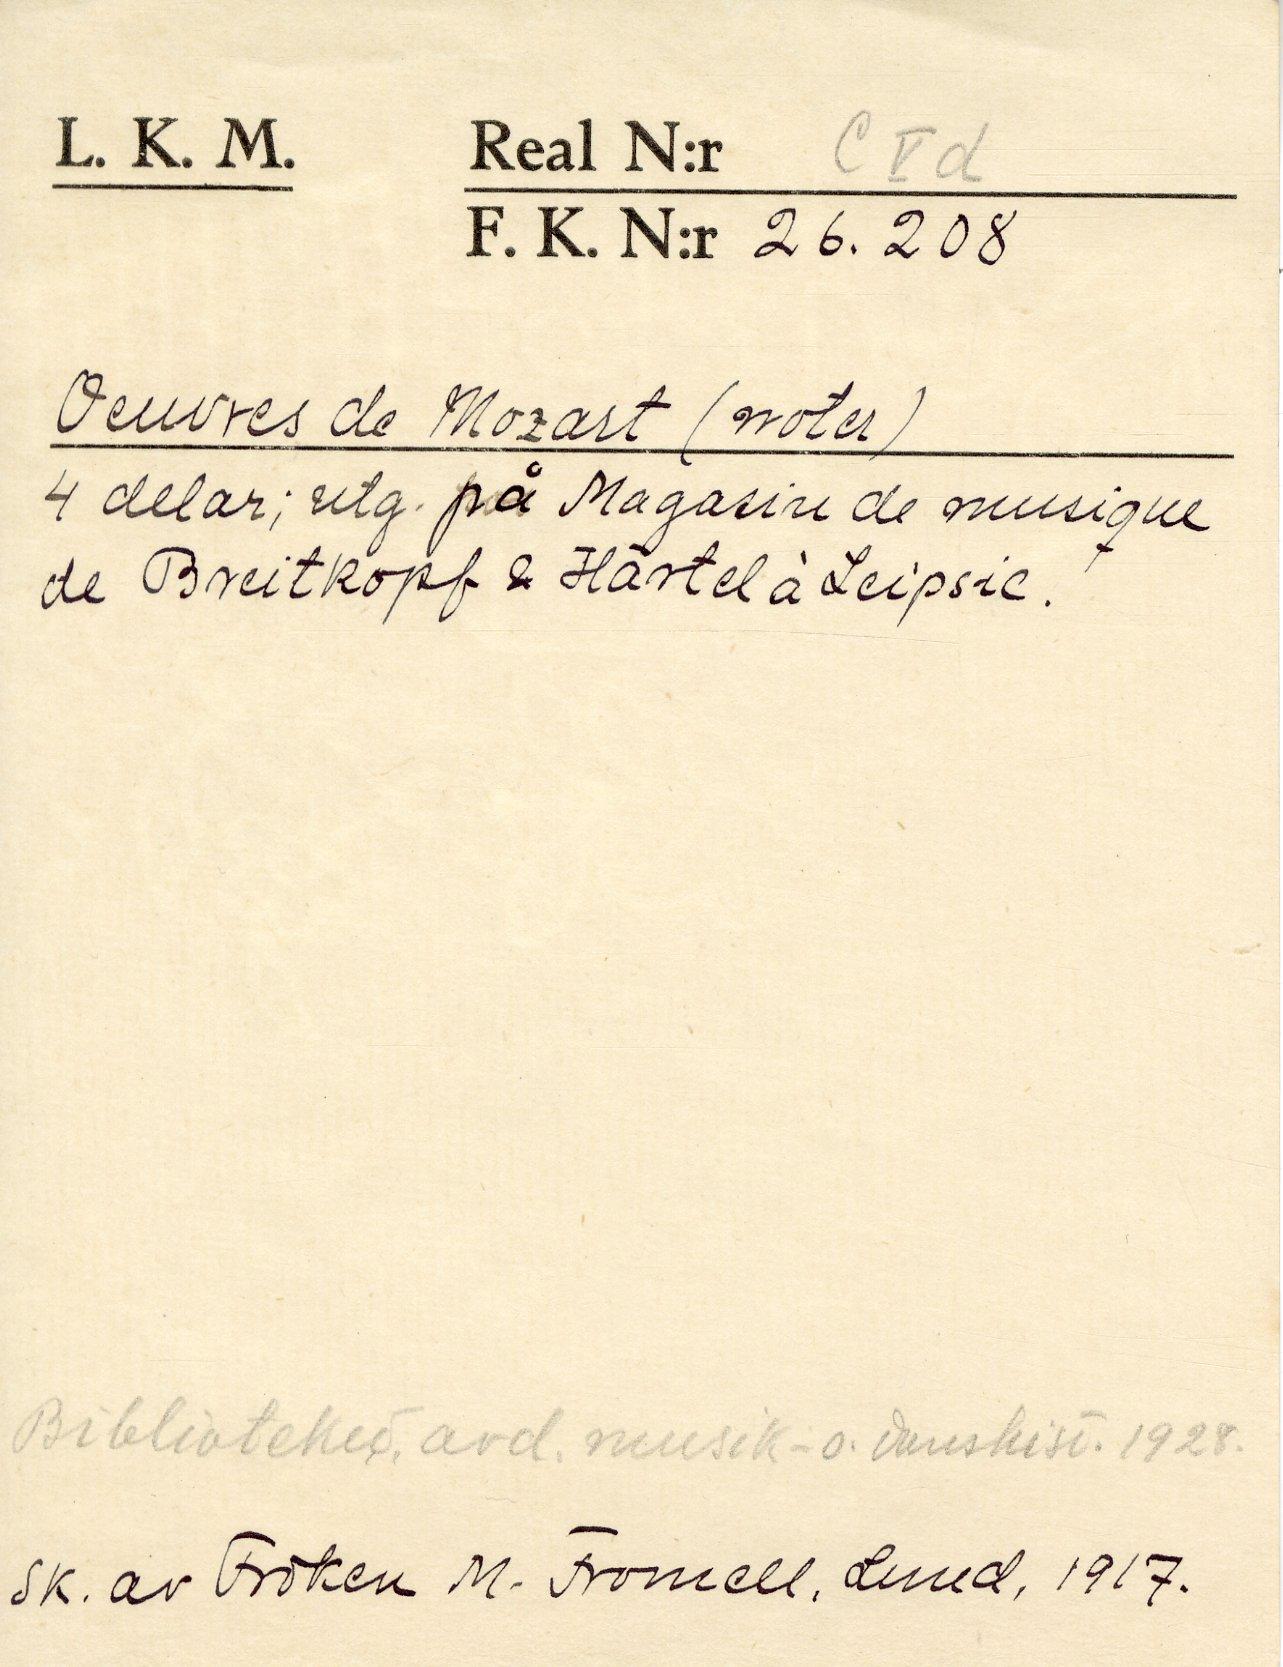 L. K. M.
Real N:r C V d
F. K. N:r 26.208
Oeuvres de Mozart (noter)
4 delar; utg. på Magasin de musique
de Breitkopf & Härtel à Leipsic.
Biblioteket, avd. musik- o. danshist. 1928.
Sk. av Fröken M. Fromell, Lund, 1917.